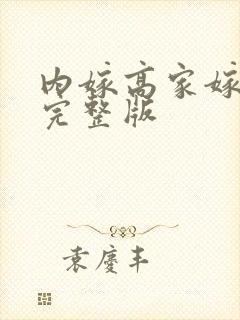 内嫁高家嫁
完整版
袁庆丰